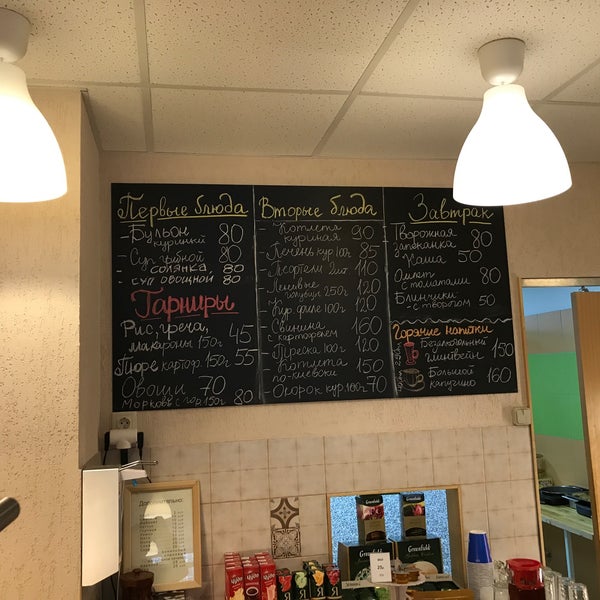 Первые блюда
- Бульон куриный 80
- Суп грибной 80
- солянка 80
- суп овощной 80
Гарниры
Рис, греча,
макароны 150г 45
Пюре картоф. 150г 55
Овощи 70
Морковь с гор. 150г 80
Вторые блюда
- Котлета
куриная 90
- Печень кур 100г 85
- Ассорти 2шт 110
- Ленивые
голубцы 250г 120
- Кур. филе 100г 120
- Свинина
с картофелем 160
- Треска 100г 120
- Котлета
по-киевски 150
- Окорок кур 100г 70
Завтрак
Творожная
запеканка 80
Каша 50
Омлет
с томатами 80
Блинчики
с творогом 50
Горячие напитки
Безалкогольный
глинтвейн 150
Большой
капучино 160
Дополнительно:
Greenfield
Greenfield
Чудо
Я
Я